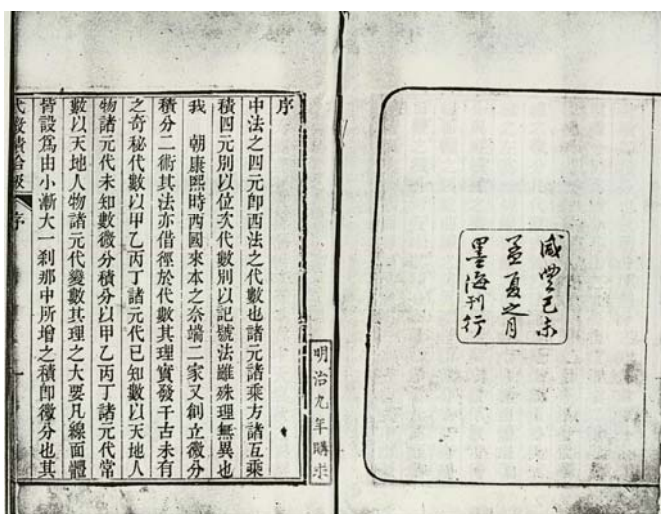 咸豐己未
孟夏之月
墨海刊行
明治九年購求
序
中法之四元卽西法之代數也諸元諸乘方諸互乘
積四元別以位次代數別以記號法雖殊理無異也
我 朝康熙時西國來本之奈端二家又創立微分
積分二術其法亦借徑於代數其理實發千古未有
之奇秘代數以甲乙丙丁諸元代已知數以天地人
物諸元代未知數微分積分以甲乙丙丁諸元代常
數以天地人物諸元代變數其理之大要凡線面體
皆設爲由小漸大一刹那中所增之積卽微分也其
代數積拾級 序 一